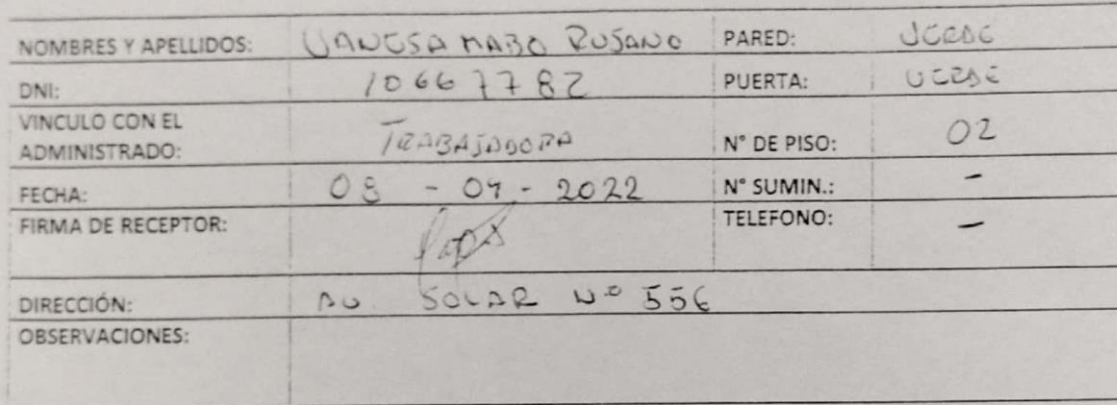 NOMBRES Y APELLIDOS: VANESA MABO RUJANO PARED: VERDE
DNI: 10667782 PUERTA: VERDE
VINCULO CON EL
ADMINISTRADO: TRABAJADORA N° DE PISO: 02
FECHA: - 2022 N° SUMIN.: -
FIRMA DE RECEPTOR: TELEFONO: -
DIRECCIÓN: AV. SOLAR N° 556
OBSERVACIONES: